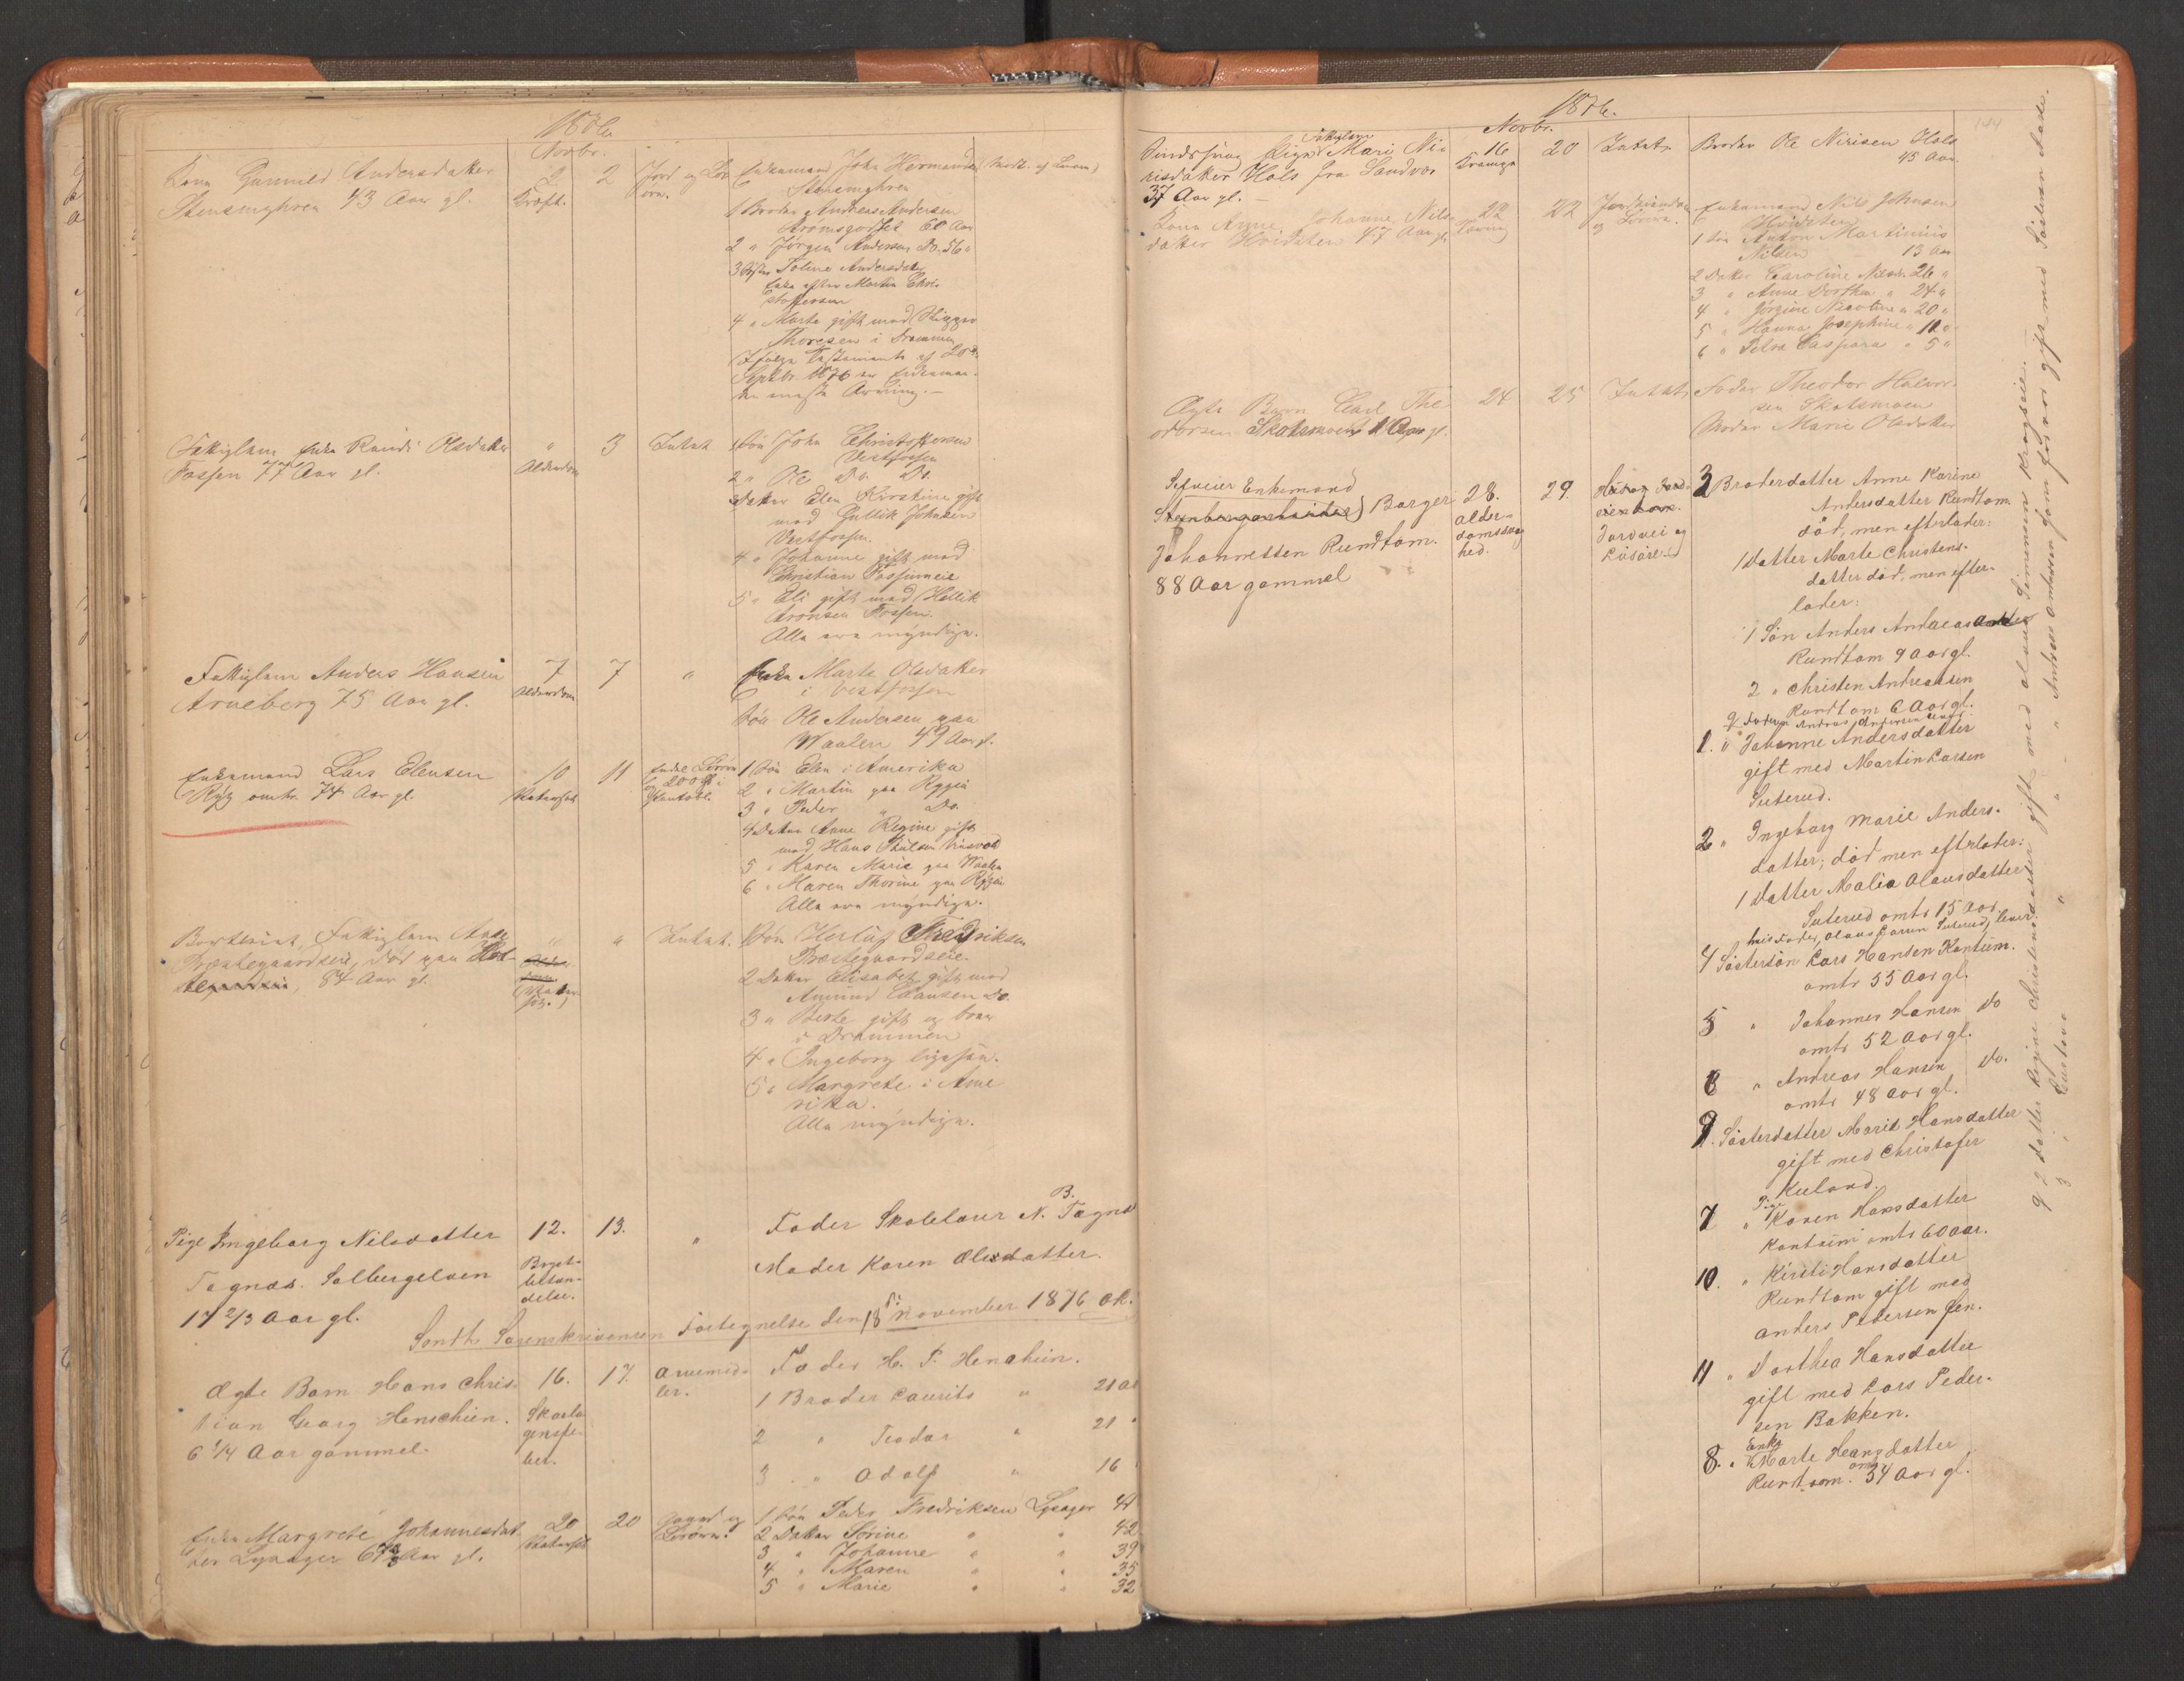 1876.
Novbr.
Kona Gunnild Andersdatter
43 Aar gl.
2
Kræft.
2
Jord og Løs
øre.
Enkemand John Hermandsen
1 Broder Anders Andersen
60 Aar
2 " Jørgen Andersen Do. 56 "
3 Søster Andersdatter
Enke efter Martin Chri-
stoffersen
4 " Marte gift med
Thoresen i Drammen
Ifølge Testamente af 20de
Septbr. 1876 er Enkeman-
den eneste Arving. —
Fattiglem Enke Randi Olsdatter
Fossen 77 Aar gl.
"
Alderdom
3
Intet
1 Søn John Christoffersen
Vestfossen
2 " Ole Do. Do.
3 Datter Elen Kirstine gift
med Gullik Johnsen
Vestfossen.
4 " Johanne gift med
Christian Fossumeie
5 " Eli gift med Hellik
Aronsen Fossen.
Alle ere myndige.
Fattiglem Anders Hansen
Arneberg 75 Aar gl.
7
Alderdom
7
"
Enke Marte Olsdatter
i Vestfossen
Søn Ole Andersen paa
Waalen 49 Aar gl.
Enkemand Lars Elensen
Ryg omtr. 74 Aar gl.
10
11
Endel Løsøre
1 Søn Elen i Amerika
2 " Martin paa Ryggin
3 " Peder " Do.
4 Datter Anne Regine gift
med Hans
5 " Karen Marie paa Waalen
6 " Maren Thorine paa
Alle ere myndige.
Fattiglem Anne
Præstegaardseie, død paa
84 Aar gl.
"
"
Intet.
Søn Herlof Fredriksen
Præstegaardseie.
2 Datter Elisabet gift med
Amund Hansen Do.
3 " Berte gift og boer
i Drammen
4 " Ingeborg ligesaa.
5 " Margrete i Ame
rika.
Alle myndige.
Pige Ingeborg Nilsdatter
Tagnæs. Solbergelven
17 2/3 Aar gl.
12.
Bryst-
betæn-
delse.
13.
"
Fader Skolelærer N. B. Tagnæs
Moder Karen Olsdatter.
Sendt Sorenskriveren Fortegnelse den 13de November 1876 OK.
Ægte Barn Hans Chris-
tian Georg Henschien.
6 1/4 Aar gammel.
16.
Skarla
gensfe-
ber.
17.
Arvemid-
ler.
Fader H. P. Henchien.
1 Broder Laurits " 21 a
2 " Teodor " 21 "
3 " Adolf " 16
Enke Margrete Johannesdat
ter Lysager 67 Aar gl.
20
20
Gaard og
Løsøre.
1 Søn Peder Fredriksen Lysager 44
2 Datter Sørine " " 42
3 " Johanne " " 39
4 " Maren " " 35
5 " Marie " " 32
1876.
Novbr.
144
Sindssvag Pige Fattiglem Mari Ni-
risdatter Hals fra Sandvær
37 Aar gl. —
16
Krampe
20
Intet
Broder Ole Nirisen Hals
45 Aar
Kona Anne Johanne Nils-
datter Hvidsten 47 Aar gl.
22
22
og Løsøre.
Enkemand Nils Johnsen
Hvidsten
1 Søn Anton Martinius
Nilsen 13 Aar
2 Datter Caroline Nilsdr. 26 "
3 " Anne Dorthea " 24 "
4 " Jørgine Nicoline " 20 "
5 " Hanna Josephine " 10 "
6 " Petra Caspara " 5 "
Ægte Barn Carl The
odorsen Skotsmoen 1 Aar gl.
24
25
Intet
Fader Theodor Halvor-
sen Skotsmoen
Moder Marie Olsdatter
Selveier Enkemand
Borger
Johannessen Rundtom.
88 Aar gammel
28.
Alder-
domssvag
hed.
29.
Jordvei og
Løsøre.
3 Broderdatter Anne Karine
Andersdatter Rundtom
død, men efterlader:
1 Datter Marte Christens-
datter død, men efter-
lader:
1 Søn Anders Andreas
Rundtom 9 Aar gl.
2 " Christen Andreassen
Rundtom 6 Aar gl.
Faderen Andreas Andersen
1. " Johanne Andersdatter
gift med Martin Larsen
Suterud.
2 " Ingeborg Marie Anders-
datter; død men efterlader:
1 Datter Malia Olausdatter
Suterud omtr 15 Aar
hvis Fader, Olaus Larsen Suterud, lever.
4 Søstersøn Lars Hansen Kantum.
omtr 55 Aar gl.
5 " Johannes Hansen Do
omtr 52 Aar gl.
6 " Andreas Hansen Do.
omtr 48 Aar gl.
9. Søsterdatter Marie Hansdatter
gift med Christofer
Kuland.
7 " Pige Karen Hansdatter
Kantum omtr 60 aar.
10. " Kirsti Hansdatter
Rundtom gift med
Anders Pedersen Gen.
11 " Dorthea Hansdatter
gift med Lars Peder-
sen Bakken.
8. " Enke Marte Hansdatter
Rundtom. omt 34 Aar gl.
2 Datter Regine Christensdatter gift med Olaus Simensen Kragseie. —
3 " Gustava " " " Andreas Andersen som forvor gift med Søsteren Marte.